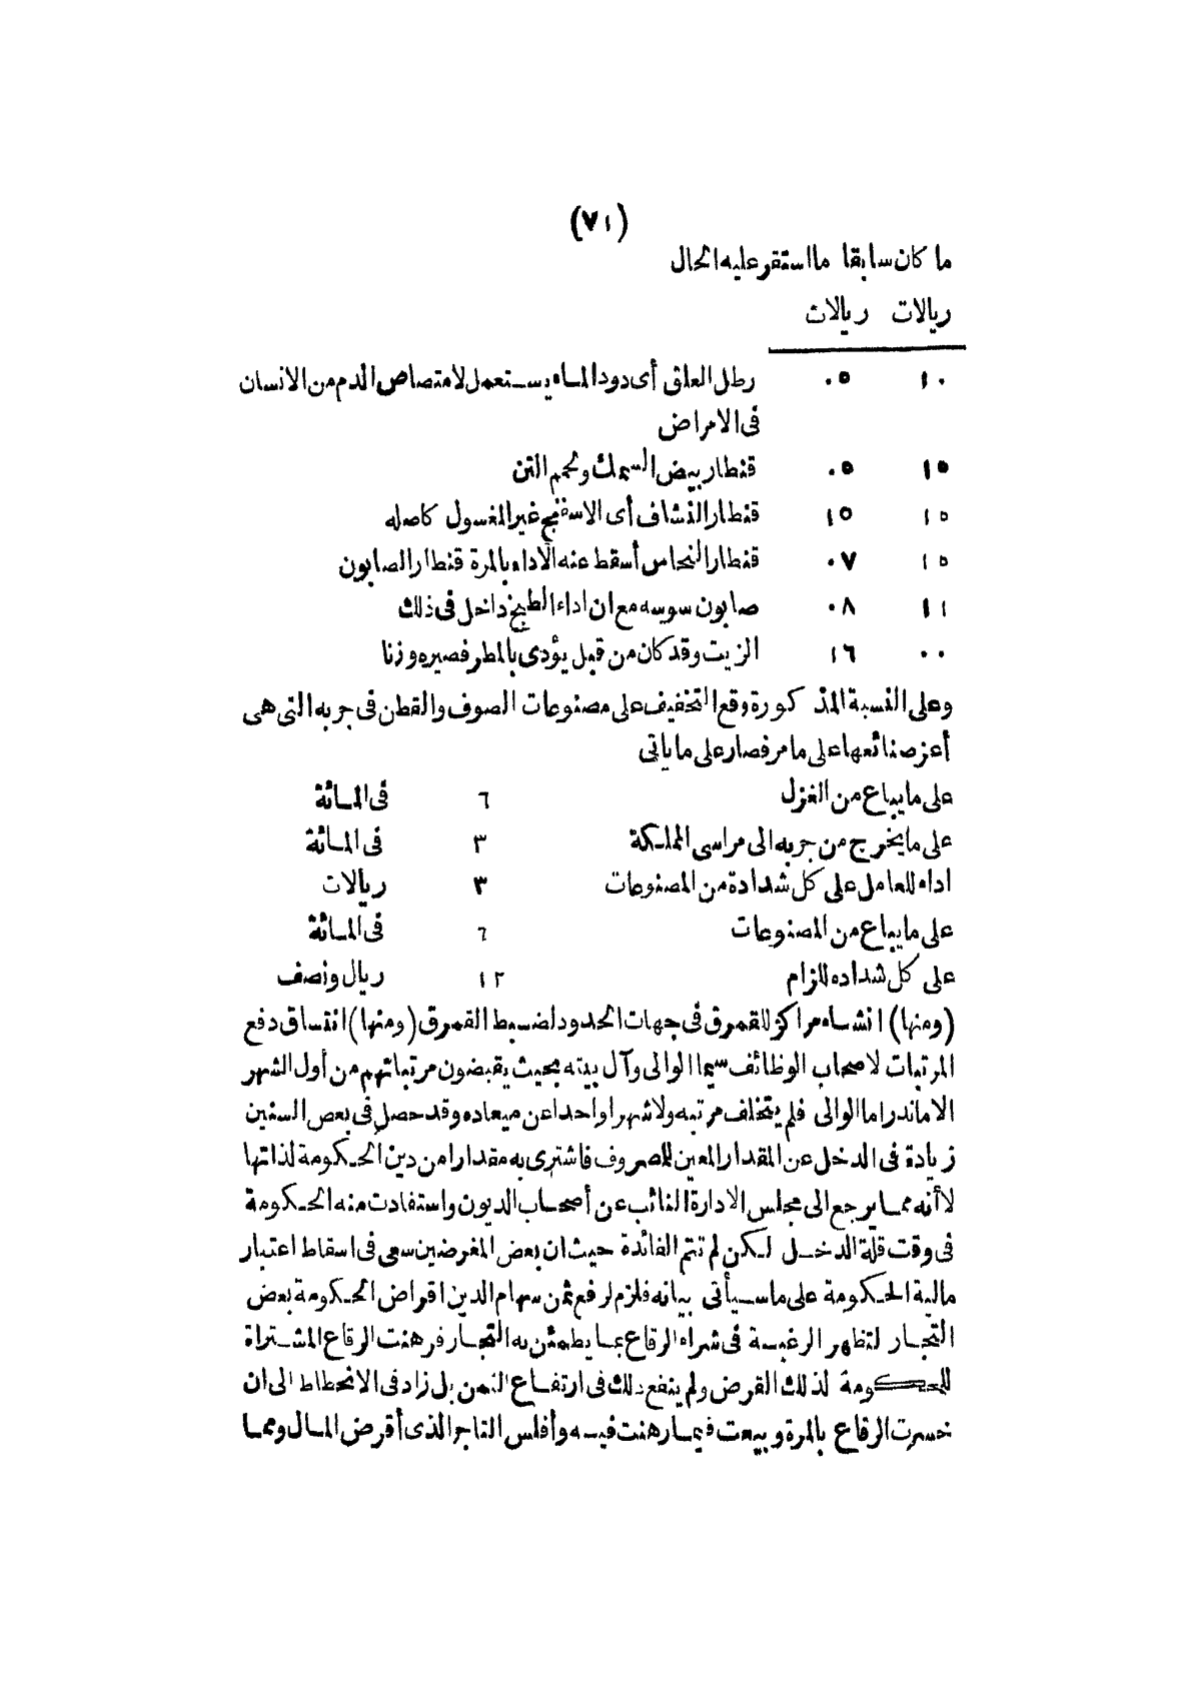 (٧١)
ما كان سابقا ما استقر عليه الحال
ريالات ريالات
١٠ ٠٥ رطل العلق أى دود الماء يستعمل لامتصاص الدم من الانسان
فى الامراض
١٥ ٠٥ قنطار بيض السمك ولحم التن
١٥ ١٥ قنطار النشاف أى الاسفنج غير المغسول كاصله
١٥ ٠٧ قنطار النحاس أسقط عنه الاداء بالمرة قنطار الصابون
١١ ٠٨ صابون سوسه مع ان اداء الطبخ داخل فى ذلك
٠٠ ١٦ الزيت وقد كان من قبل يؤدى بالمطر فصيره وزنا
وعلى النسبة المذكورة وقع التخفيف على مصنوعات الصوف والقطن فى جربه التى هى
أعز صنائعها على ما مر فصار على ما ياتى
على ما يباع من الغزل ٦ فى المائة
على ما يخرج من جربه الى مراسى المملكة ٣ فى المائة
اداء للعامل على كل شدادة من المصنوعات ٣ ريالات
على ما يباع من المصنوعات ٦ فى المائة
على كل شداده للزام ١٢ ريال ونصف
(ومنها) انشاء مراكز للقمرق فى جهات الحدود لضبط القمرق (ومنها) انتساق دفع
المرتبات لاصحاب الوظائف سيما الوالى وآل بيته بحيث يقبضون مرتباتهم من أول الشهر
الا ماندر اما الوالى فلم يتخلف مرتبه ولا شهرا واحدا عن ميعاده وقد حصل فى بعض السنين
زيادة فى الدخل عن المقدار المعين للصروف فاشترى به مقدارا من دين الحكومة لذاتها
لا أنه مما يرجع الى مجلس الادارة النائب عن أصحاب الديون واستفادت منه الحكومة
فى وقت قلة الدخل لكن لم تتم الفائدة حيث ان بعض المغرضين سعى فى اسقاط اعتبار
مالية الحكومة على ما سيأتى بيانه فلزم لرفع ثمن سهام الدين اقراض الحكومة بعض
التجار لتظهر الرغبة فى شراء الرقاع بما يطمئن به التجار فرهنت الرقاع المشتراة
للحكومة لذلك القرض ولم ينفع ذلك فى ارتفاع الثمن بل زاد فى الانحطاط الى ان
خسرت الرقاع بالمرة وبيعت فيما رهنت فيه وأفلس التاجر الذى أقرض المال ومما